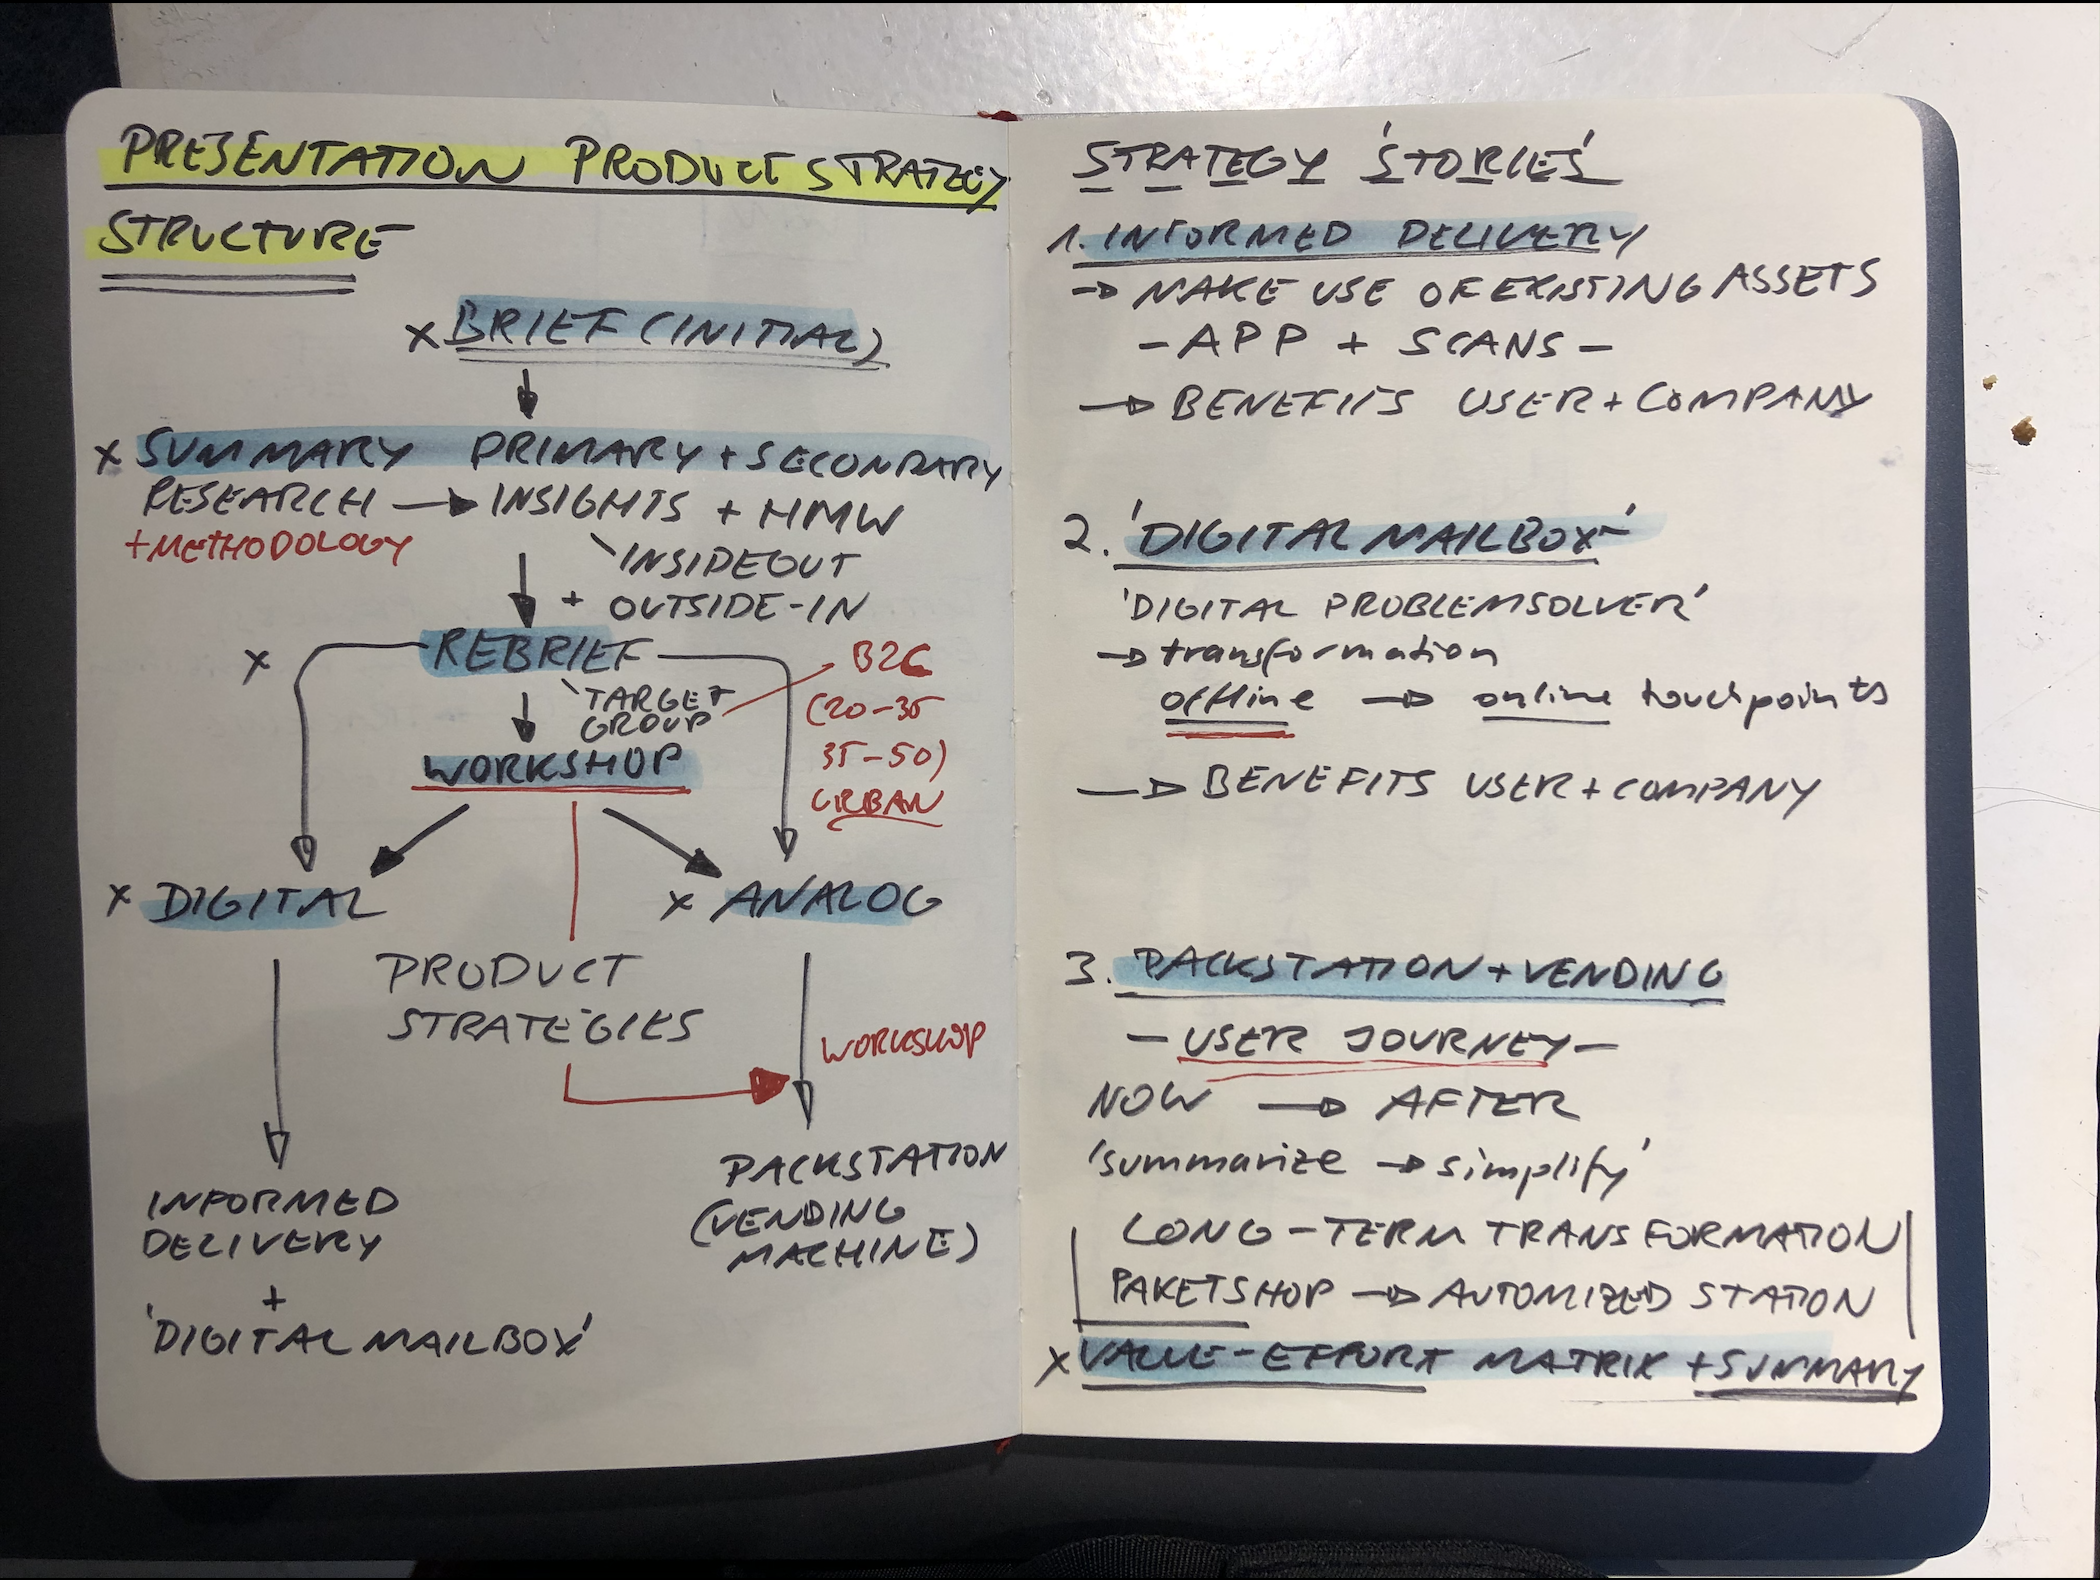 PRESENTATION PRODUCT STRATEGY
STRUCTURE
x BRIEF (INITIAL)
x SUMMARY PRIMARY + SECONDARY
RESEARCH → INSIGHTS + HMW
+ METHODOLOGY
INSIDEOUT
+ OUTSIDE-IN
x REBRIEF
TARGET
GROUP
B2C
(20-35
35-50)
URBAN
WORKSHOP
x DIGITAL
x ANALOG
PRODUCT
STRATEGIES
WORKSHOP
INFORMED
DELIVERY
+
'DIGITAL MAILBOX'
PACKSTATION
(VENDING
MACHINE)
STRATEGY 'STORIES'
1. INFORMED DELIVERY
→ MAKE USE OF EXISTING ASSETS
- APP + SCANS -
→ BENEFITS USER + COMPANY
2. 'DIGITAL MAILBOX'
'DIGITAL PROBLEMSOLVER'
→ transformation
offline → online touchpoints
→ BENEFITS USER + COMPANY
3. PACKSTATION + VENDING
- USER JOURNEY -
NOW → AFTER
'summarize → simplify'
LONG-TERM TRANSFORMATION
PAKETSHOP → AUTOMIZED STATION
x VALUE-EFFORT MATRIX + SUMMARY